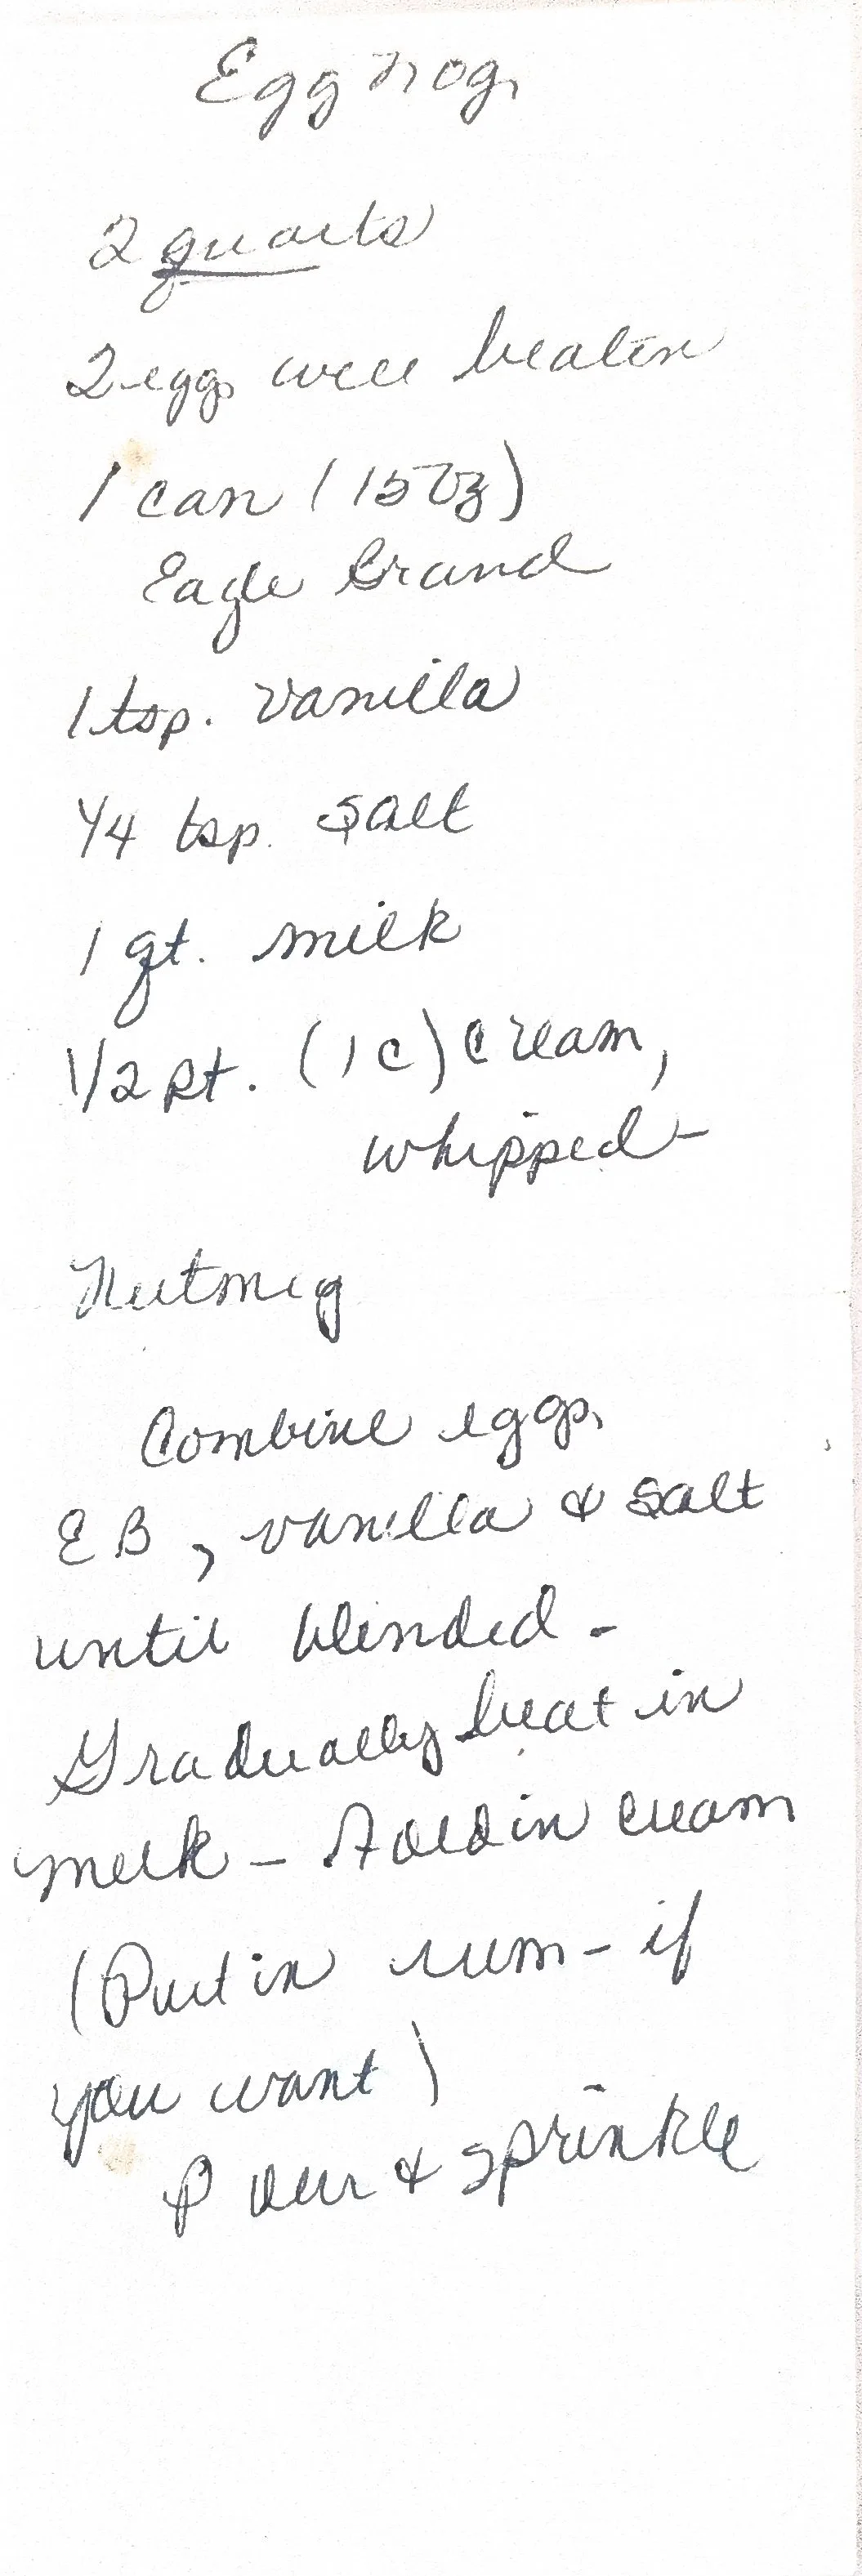 Egg nog
2 quarts
2 eggs well beaten
1 can (15 oz)
Eagle Brand
1 tsp. vanilla
1/4 tsp. salt
1 qt. milk
1/2 pt. (1 c) cream,
whipped
Nutmeg
Combine eggs,
EB, vanilla & salt
until blended -
Gradually beat in
milk - Fold in cream
(Put in rum - if
you want)
Pour & sprinkle